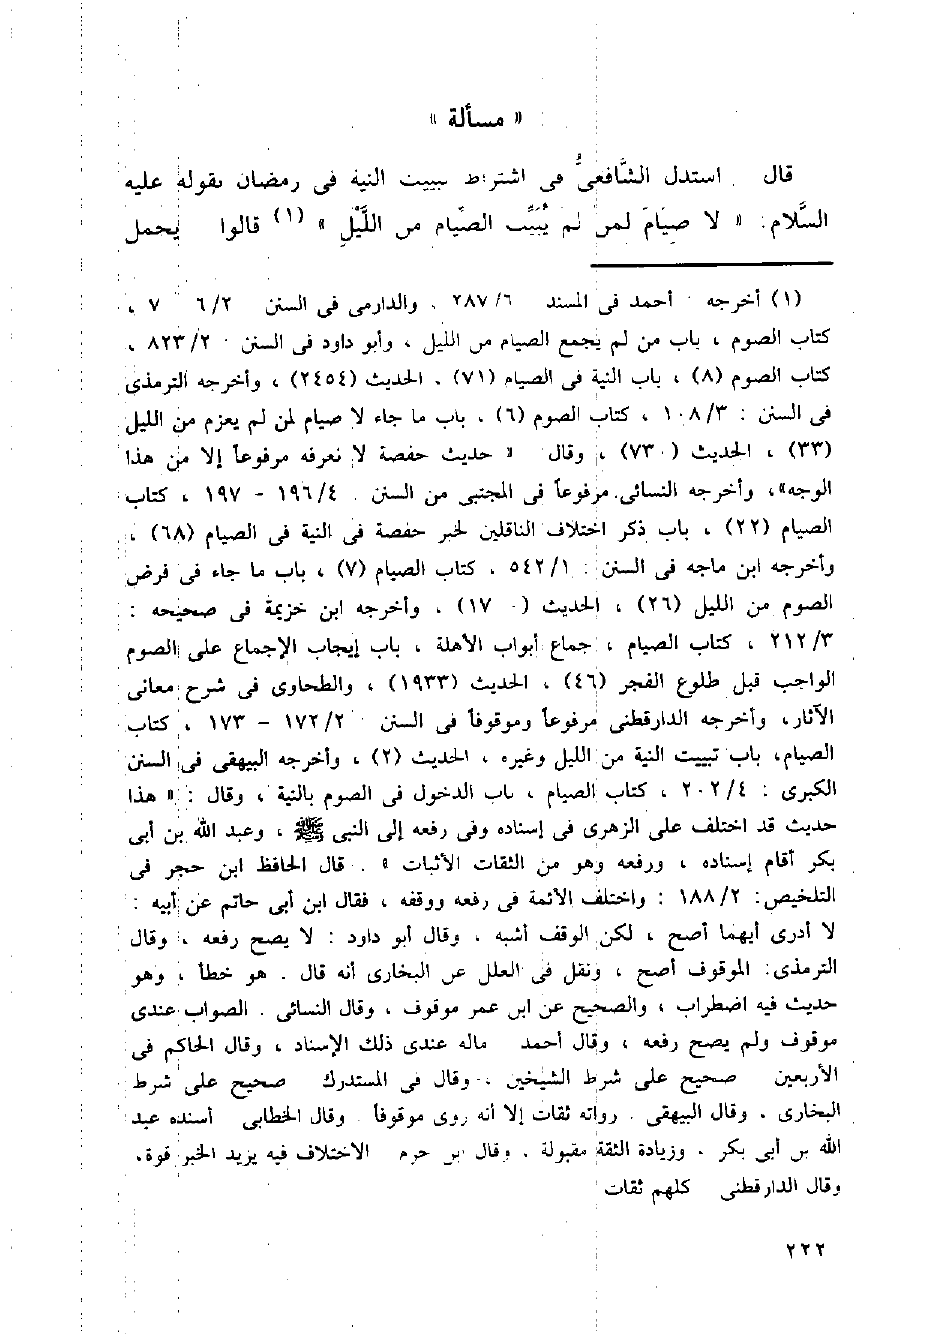 « مسألة »
قال . استدل الشَّافعىُّ فى اشتراط تبييت النية فى رمضان بقوله عليه
السَّلام : « لا صِيَامَ لمن لم يُبَيِّت الصِّيام من اللَّيْلِ » (١) قالوا يحمل
(١) أخرجه أحمد فى المسند ٢٨٧/٦ . والدارمى فى السنن ٦/٢ ٧ ،
كتاب الصوم ، باب من لم يجمع الصيام من الليل ، وأبو داود فى السنن ٨٢٣/٢ ،
كتاب الصوم (٨) ، باب النية فى الصيام (٧١) . الحديث (٢٤٥٤) ، وأخرجه الترمذى
فى السنن : ١٠٨/٣ ، كتاب الصوم (٦) . باب ما جاء لا صيام لمن لم يعزم من الليل
(٣٣) ، الحديث (٧٣٠) ، وقال « حديث حفصة لا نعرفه مرفوعاً إلا من هذا
الوجه» ، وأخرجه النسائى . مرفوعاً فى المجتبى من السنن . ١٩٦/٤ - ١٩٧ ، كتاب
الصيام (٢٢) ، باب ذكر اختلاف الناقلين لخبر حفصة فى النية فى الصيام (٦٨) ،
وأخرجه ابن ماجه فى السنن : ٥٤٢/١ . كتاب الصيام (٧) ، باب ما جاء فى فرض
الصوم من الليل (٢٦) ، الحديث (١٧٠٠) ، وأخرجه ابن خزيمة فى صحيحه :
٢١٢/٣ ، كتاب الصيام ، جماع أبواب الأهلة ، باب إيجاب الإجماع على الصوم
الواجب قبل طلوع الفجر (٤٦) ، الحديث (١٩٣٣) ، والطحاوى فى شرح معانى
الآثار ، وأخرجه الدارقطنى مرفوعاً وموقوفاً فى السنن ١٧٢/٢ - ١٧٣ ، كتاب
الصيام، باب تبييت النية من الليل وغيره ، الحديث (٢) ، وأخرجه البيهقى فى السنن
الكبرى : ٢٠٢/٤ ، كتاب الصيام ، باب الدخول فى الصوم بالنية ، وقال : « هذا
حديث قد اختلف على الزهرى فى إسناده وفى رفعه إلى النبى ﷺ ، وعبد الله بن أبى
بكر أقام إسناده ، ورفعه وهو من الثقات الأثبات » . قال الحافظ ابن حجر فى
التلخيص: ١٨٨/٢ : واختلف الأئمة فى رفعه ووقفه ، فقال ابن أبى حاتم عن أبيه :
لا أدرى أيهما أصح ، لكن الوقف أشبه ، وقال أبو داود : لا يصح رفعه ، وقال
الترمذى : الموقوف أصح ، ونقل فى العلل عن البخارى أنه قال . هو خطأ ، وهو
حديث فيه اضطراب ، والصحيح عن ابن عمر موقوف ، وقال النسائى . الصواب عندى
موقوف ولم يصح رفعه ، وقال أحمد ماله عندى ذلك الإسناد ، وقال الحاكم فى
الأربعين صحيح على شرط الشيخين . وقال فى المستدرك صحيح على شرط
البخارى . وقال البيهقى . رواته ثقات إلا أنه روى موقوفاً . وقال الخطابى أسنده عبد
الله بن أبى بكر . وزيادة الثقة مقبولة . وقال ابن حزم الاختلاف فيه يزيد الخبر قوة .
وقال الدارقطنى كلهم ثقات
٢٢٢